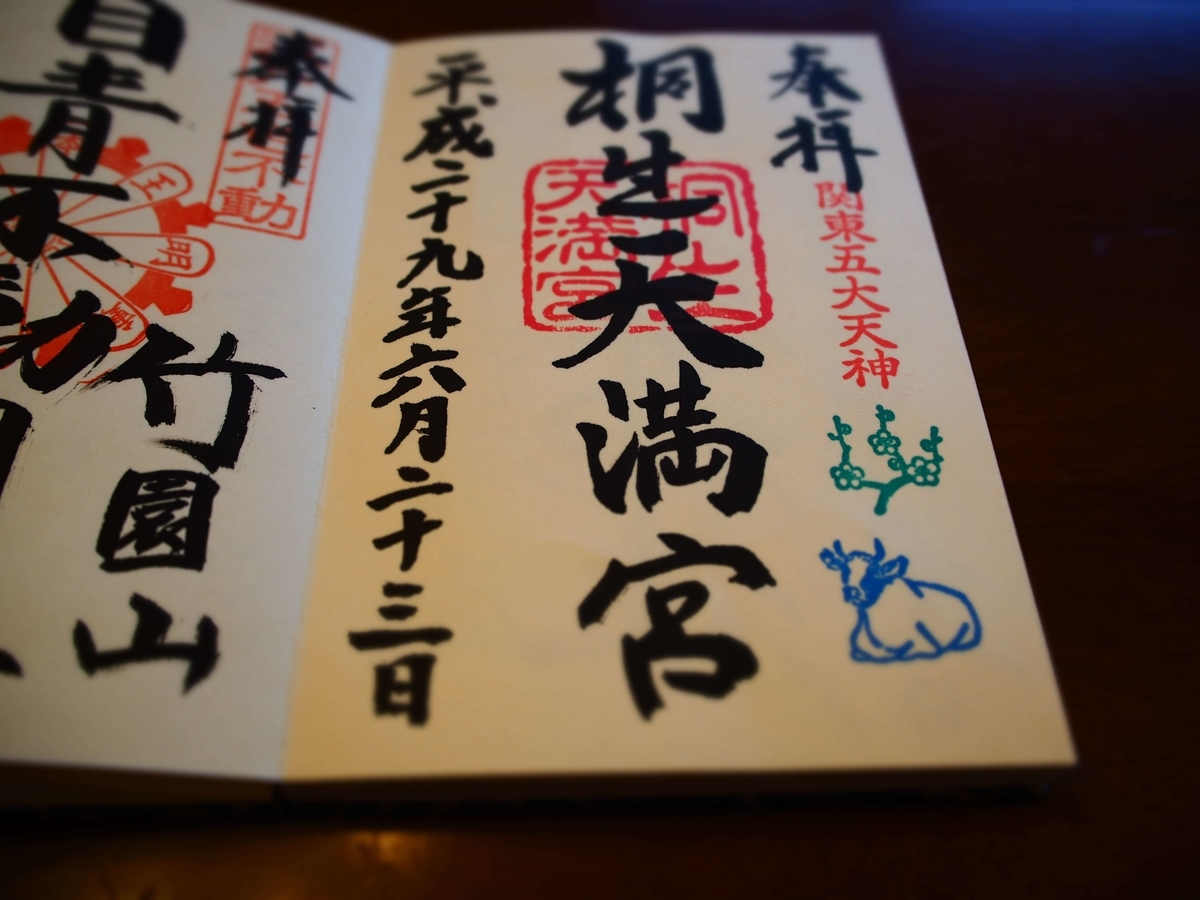 奉拝
関東五大天神
桐生天満宮
桐生
天満宮
平成二十九年六月二十三日
奉拝
不動
竹園山
目青不動
王
明